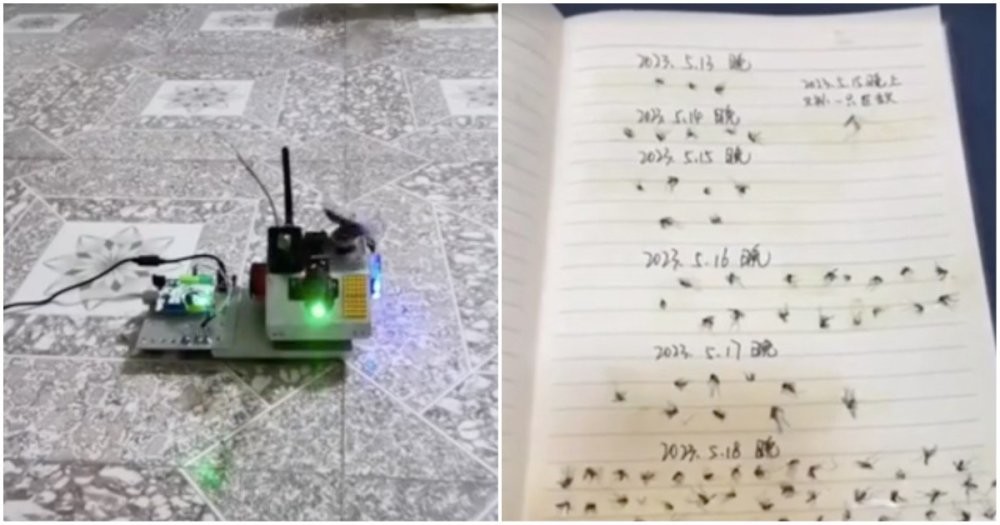 2023. 5.13 晚
2023. 5.15 晚上
2023. 5.14 晚
2023. 5.15 晚
2023. 5.16 晚
2023. 5.17 晚
2023. 5.18 晚